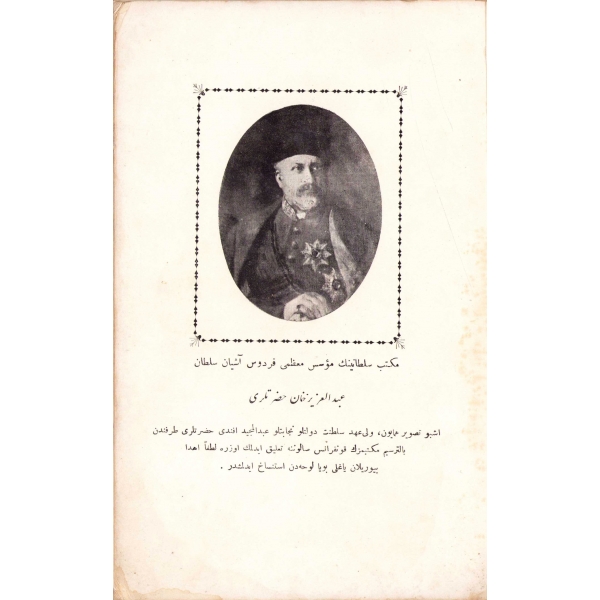 مكتب سلطانينك مؤسس معظمى فردوس آشيان سلطان
عبدالعزيزخان حضرتلرى
اشبو تصوير همايون، ولى‌عهد سلطنت دولتلو نجابتلو عبدالمجيد افندى حضرتلرى طرفندن
بالترسيم مكتبمزك قونفرانس صالوننه تعليق ايدلمك اوزره لطفاً اهدا
بيوريلان ياغلى بويا لوحه‌دن استنساخ ايدلمشدر .